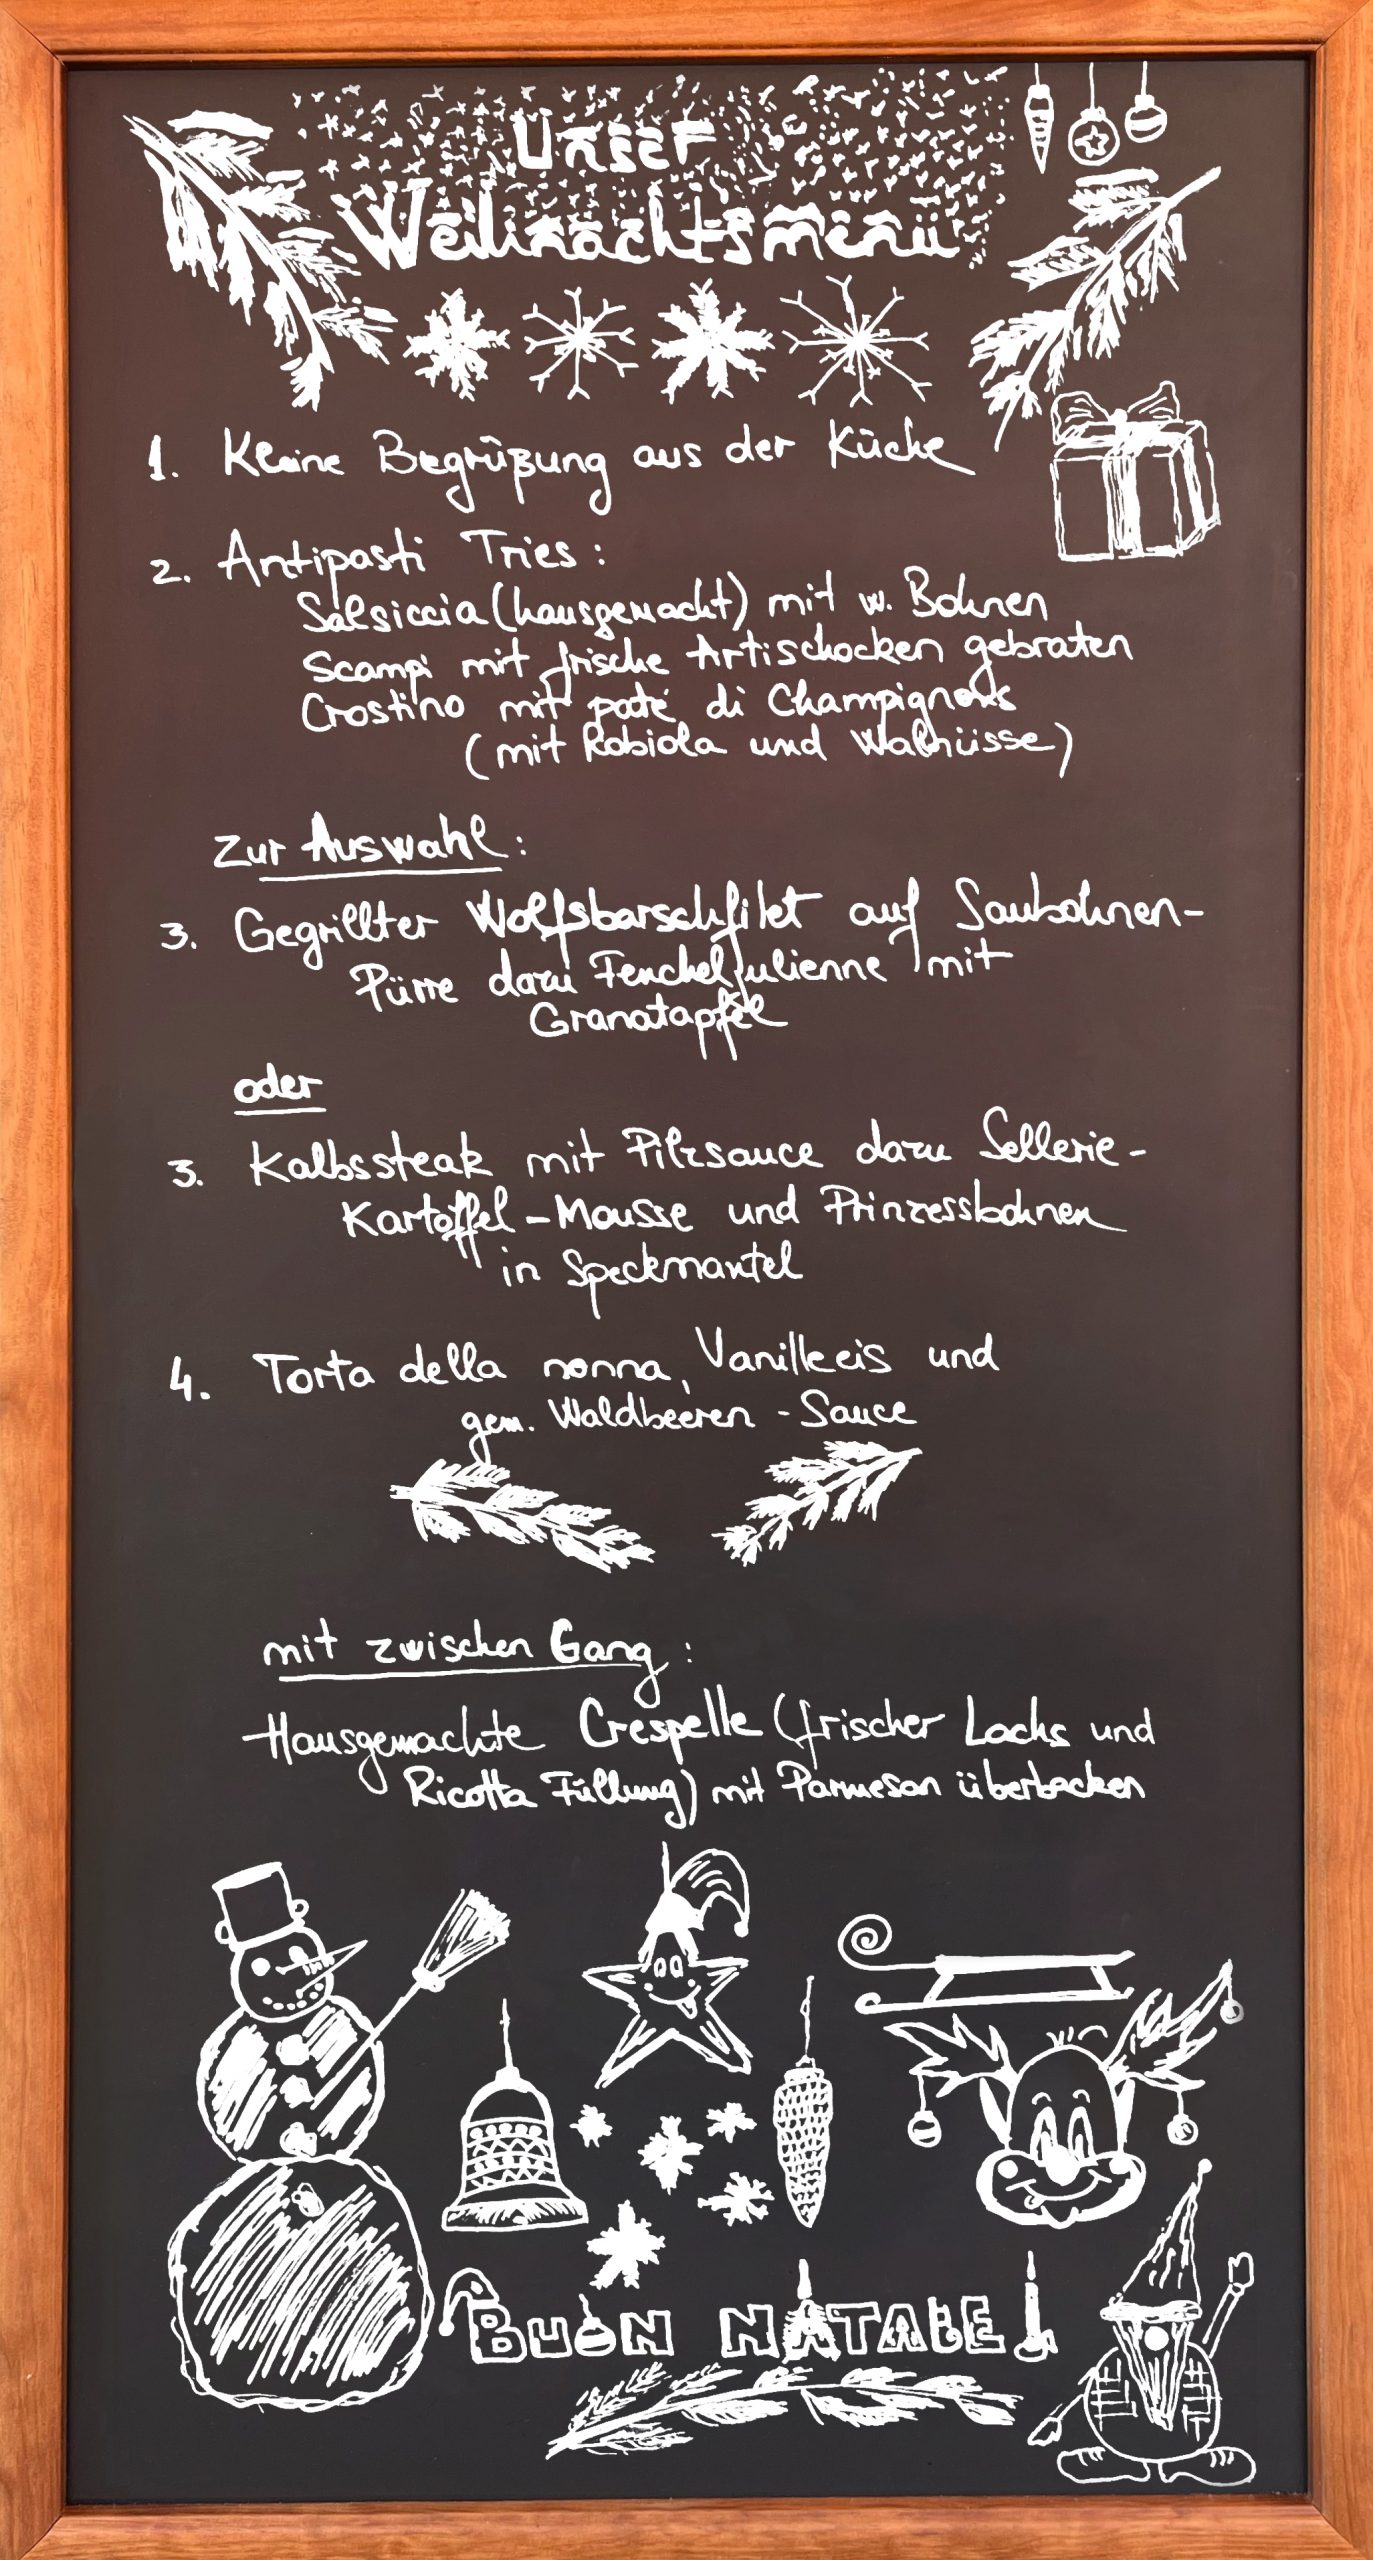 Unser
Weihnachtsmenü
1. Kleine Begrüßung aus der Küche
2. Antipasti Tries:
Salsiccia (hausgemacht) mit w. Bohnen
Scampi mit frische Artischocken gebraten
Crostino mit paté di Champignons
(mit Robiola und Walnüsse)
Zur Auswahl:
3. Gegrillter Wolfsbarschfilet auf Saubohnen-
Pürre dazu Fencheljulienne mit
Granatapfel
oder
3. Kalbssteak mit Pilzsauce dazu Sellerie-
Kartoffel-Mousse und Prinzessbohnen
in Speckmantel
4. Torta della nonna, Vanilleeis und
gem. Waldbeeren - Sauce
mit zwischen Gang:
Hausgemachte Crespelle (frischer Lachs und
Ricotta Füllung) mit Parmesan überbacken
BUON NATALE!